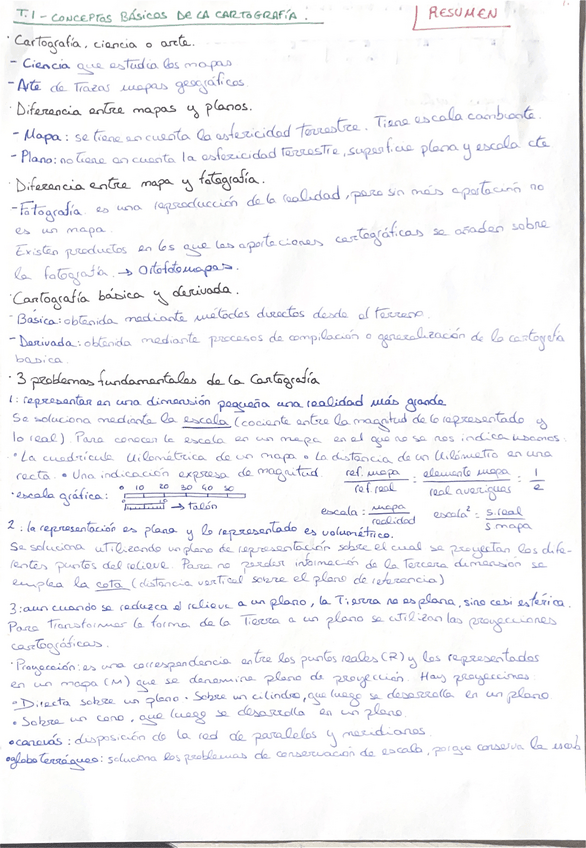 T.1 - CONCEPTOS BÁSICOS DE LA CARTOGRAFÍA.
RESUMEN
· Cartografía, ciencia o arte.
- Ciencia que estudia los mapas
- Arte de trazar mapas geográficos.
· Diferencia entre mapas y planos.
- Mapa: se tiene en cuenta la esfericidad terrestre. Tiene escala cambiante.
- Plano: no tiene en cuenta la esfericidad terrestre, superficie plana y escala cte
· Diferencia entre mapa y fotografía.
- Fotografía es una reproducción de la realidad, pero sin más aportación no
es un mapa.
Existen productos en los que las aportaciones cartográficas se añaden sobre
la fotografía. → Ortofotomapas.
· Cartografía básica y derivada.
- Básica: obtenida mediante métodos directos desde el terreno.
- Derivada: obtenida mediante procesos de compilación o generalización de la cartografía
basica.
· 3 problemas fundamentales de la Cartografía
1: representar en una dimensión pequeña una realidad más grande
Se soluciona mediante la escala (cociente entre la magnitud de lo representado y
lo real). Para conocer la escala en un mapa en el que no se nos indica usamos:
• La cuadrícula kilométrica de un mapa • La distancia de un kilómetro en una
recta. • Una indicación expresa de magnitud ref. mapa / ref. real = elemento mapa / real averiguar = 1 / e
• escala gráfica: 0 10 20 30 40 50
→ talón
escala = mapa / realidad escala² = S. real / S mapa
2: la representación es plana y lo representado es volumétrico.
Se soluciona utilizando un plano de representación sobre el cual se proyectan los dife-
rentes puntos del relieve. Para no perder información de la tercera dimensión se
emplea la cota (distancia vertical sobre el plano de referencia)
3: aun cuando se reduzca el relieve a un plano, la Tierra no es plana, sino casi esférica.
Para transformar la forma de la Tierra a un plano se utilizan las proyecciones
cartográficas.
· Proyección: es una correspondencia entre los puntos reales (R) y los representados
en un mapa (M) que se denomina plano de proyección. Hay proyecciones
• Directa sobre un plano • Sobre un cilindro, que luego se desarrolla en un plano
• Sobre un cono, que luego se desarrolla en un plano.
• canevás: disposición de la red de paralelos y meridianos.
• globo terráqueo: soluciona los problemas de conservación de escala, porque conserva la escala